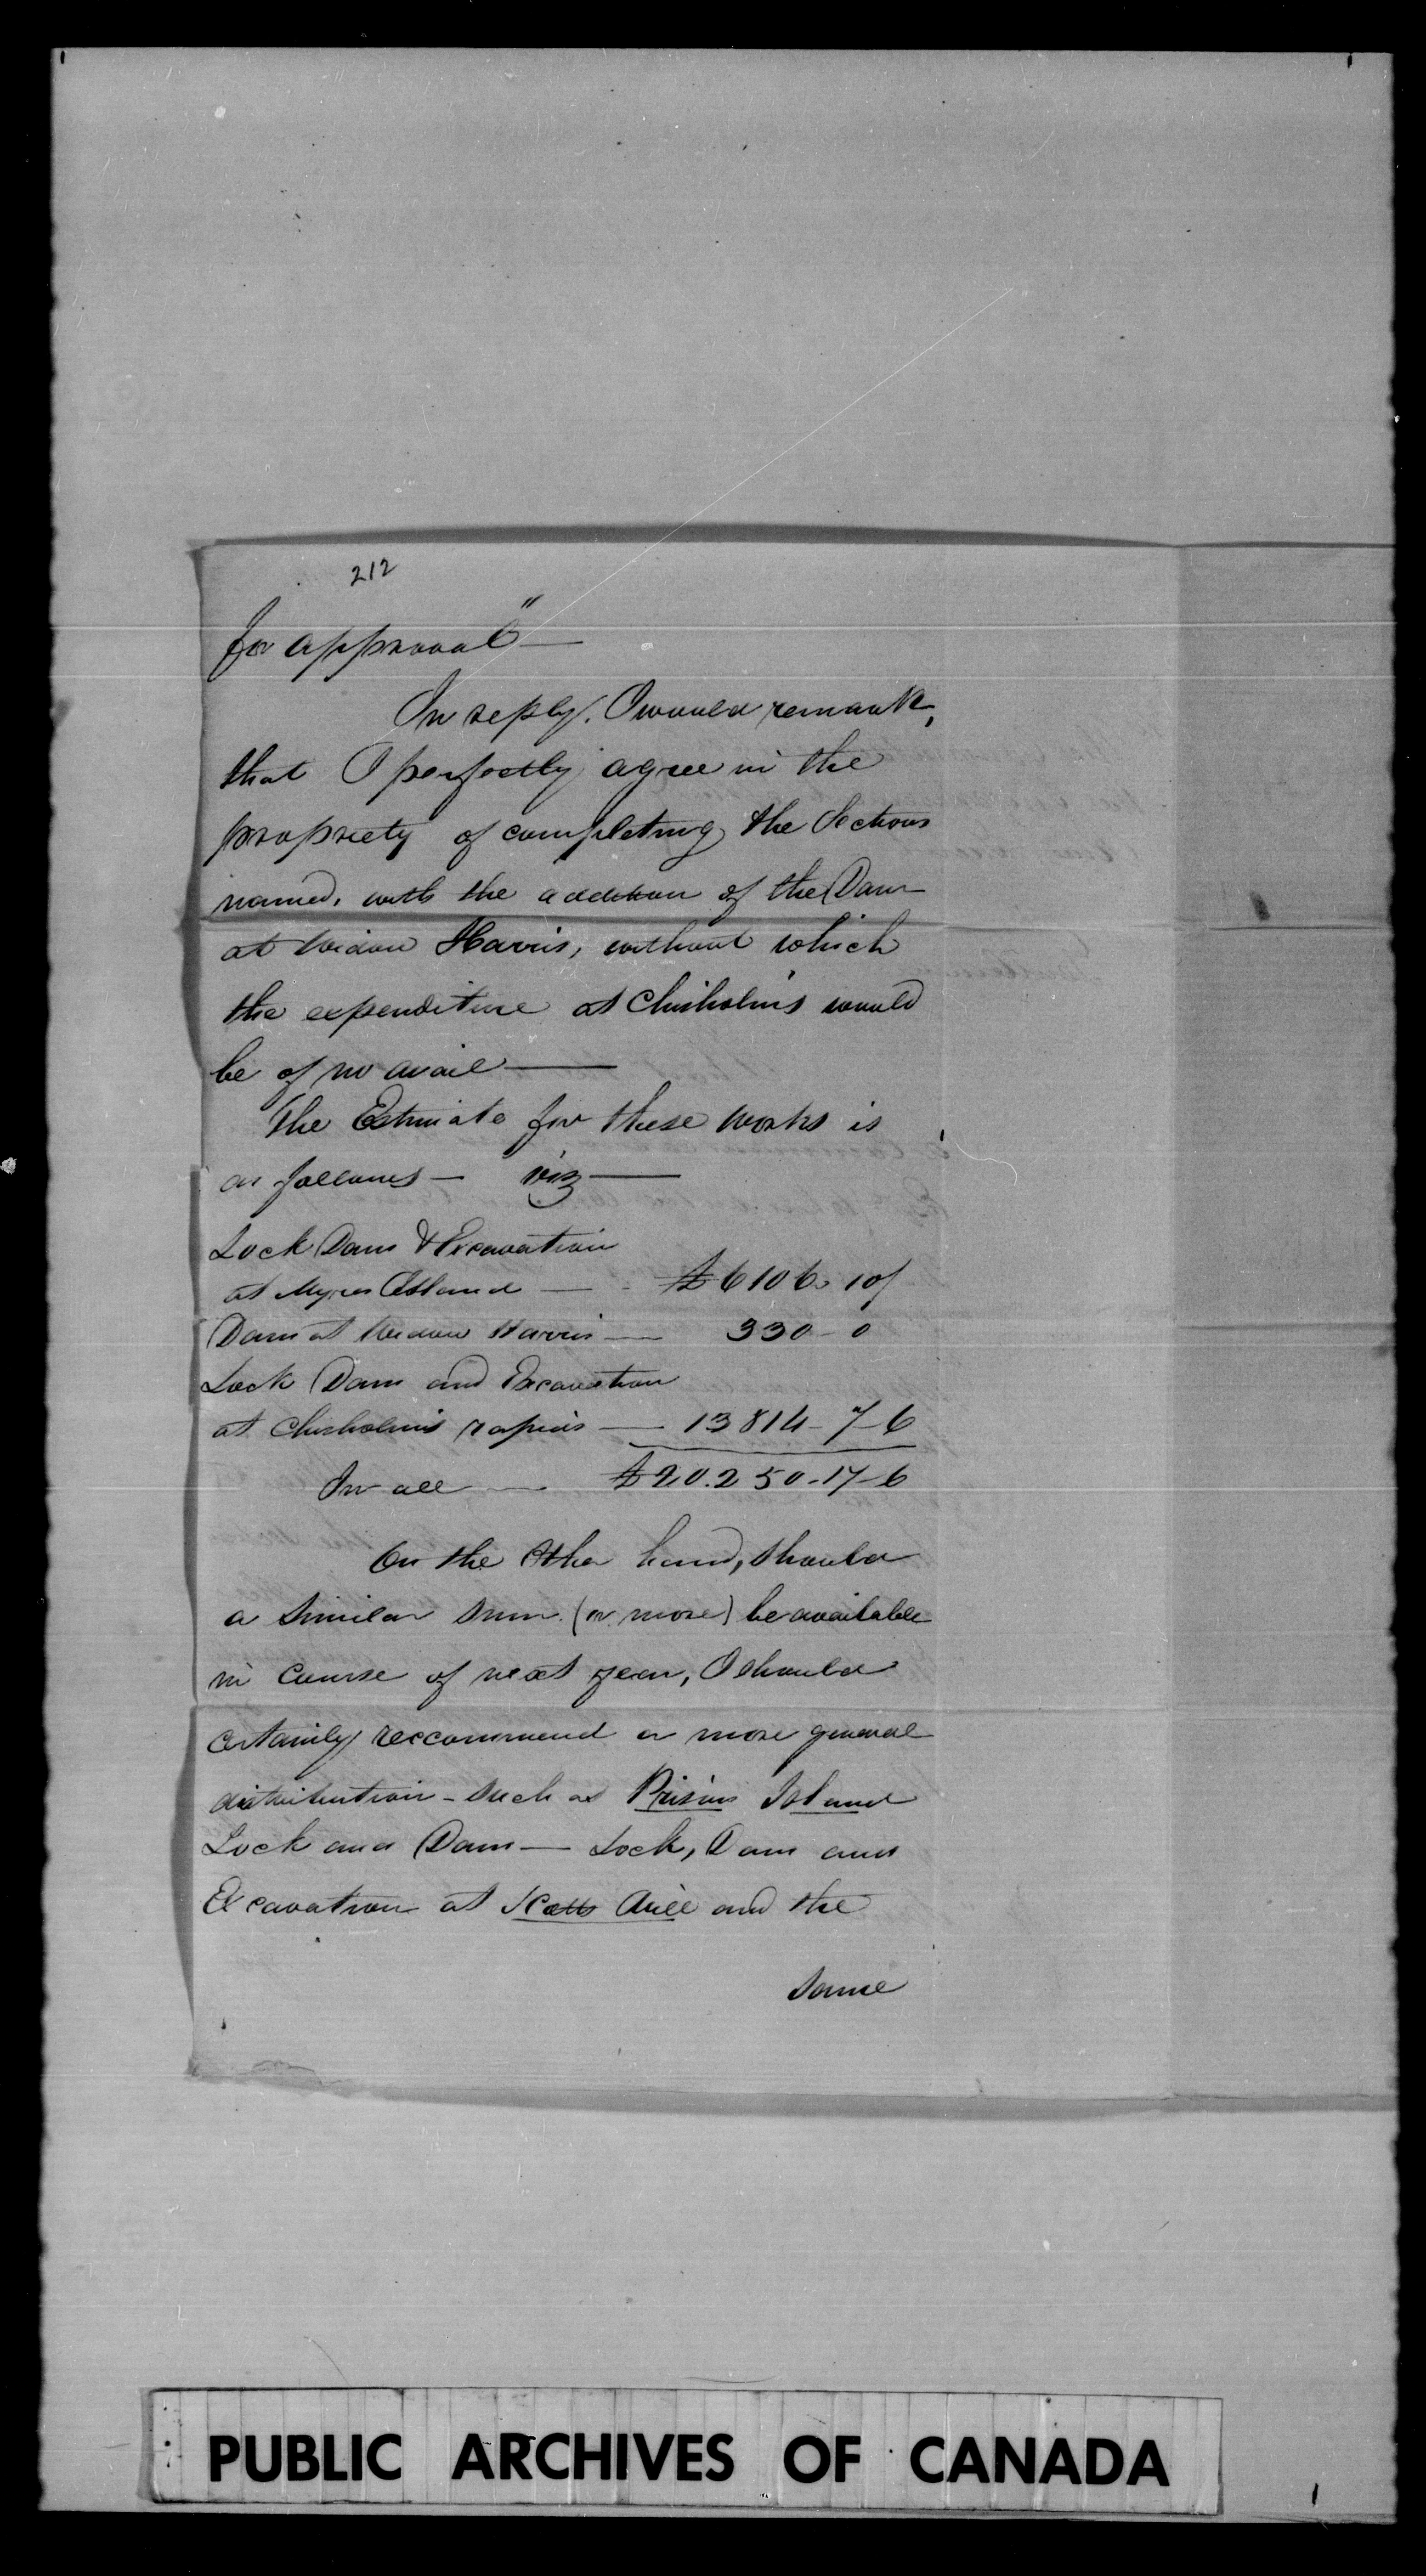 212
for approval" —
In reply. I would remark,
that I perfectly agree in the
propriety of completing the Sections
named, with the addition of the Dam
at Widow Harris, without which
the expenditure at Chisholms would
be of no avail —
The Estimate for these works is
as follows — viz —
Lock Dam & Excavation
at Myers Island — £6106. 10/
Dam at Widow Harris — 330 - 0
Lock Dam and Excavation
at Chisholms rapids — 13814 - 7 - 6
In all — £20.250 - 17 - 6
On the other hand, should
a similar sum (or more) be available
in course of next year, I should
certainly reccommend a more general
distribution - such as Island
Lock and Dam — Lock, Dam and
Excavation at Scotts Mill and the
same
PUBLIC ARCHIVES OF CANADA